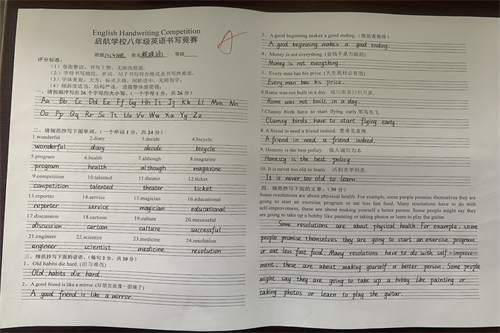 English Handwriting Competition
启航学校八年级英语书写竞赛
班级 姓名 等级
A
评分标准:
一、请按顺序写出 26 个字母的大小写。(一个字母 1 分,共 26 分)
Aa Bb Cc Dd Ee Ff Gg Hh Ii Jj Kk Ll Mm Nn
Oo Pp Qq Rr Ss Tt Uu Vv Ww Xx Yy Zz
二、请规范抄写下面单词。(一个单词 1 分,共 24 分)
1.wonderful 2.diary 3.decide 4.bicycle
wonderful diary decide bicycle
5.program 6.health 7.although 8.magazine
program health although magazine
9.competition 10.talented 11.theater 12.ticket
competition talented theater ticket
13.reporter 14.service 15.magician 16.educational
reporter service magician educational
17.discussion 18.cartoon 19.culture 20.successful
discussion cartoon culture successful
21.engineer 22.scientist 23.medicine 24.resolution
engineer scientist medicine resolution
三、规范抄写下面的谚语。(每句 2 分,共 20 分)
1. Old habits die hard. (旧习难改)
Old habits die hard.
2. A good friend is like a mirror. (好朋友就像一面镜子)
A good friend is like a mirror.
3. A good beginning makes a good ending. (善始者善终)
A good beginning makes a good ending.
4. Money is not everything. (金钱不是万能的)
Money is not everything.
5. Every man has his price.
Every man has his price.
6.Rome was not built in a day.
Rome was not built in a day.
7.Clumsy birds have to start flying early.笨鸟先飞
Clumsy birds have to start flying early.
8. A friend in need is a friend indeed. 患难见真情
A friend in need is a friend indeed.
9. Honesty is the best policy.
Honesty is the best policy
10. It is never too old to learn. 活到老学到老
It is never too old to learn.
四、规范抄写下面的文章。(30 分)
Some resolutions are about physical health. For example, some people promise themselves they are
going to start an exercise program or eat less fast food. Many resolutions have to do with
self-improvement, these are about making yourself a better person. Some people might say they
are going to take up a hobby like painting or taking photos or learn to play the guitar.
Some resolutions are about physical health. For example, some
people promise themselves they are going to start an exercise program
or eat less fast food. Many resolutions have to do with self-improve-
ment, these are about making yourself a better person. Some people
might say they are going to take up a hobby like painting or
taking photos or learn to play the guitar.